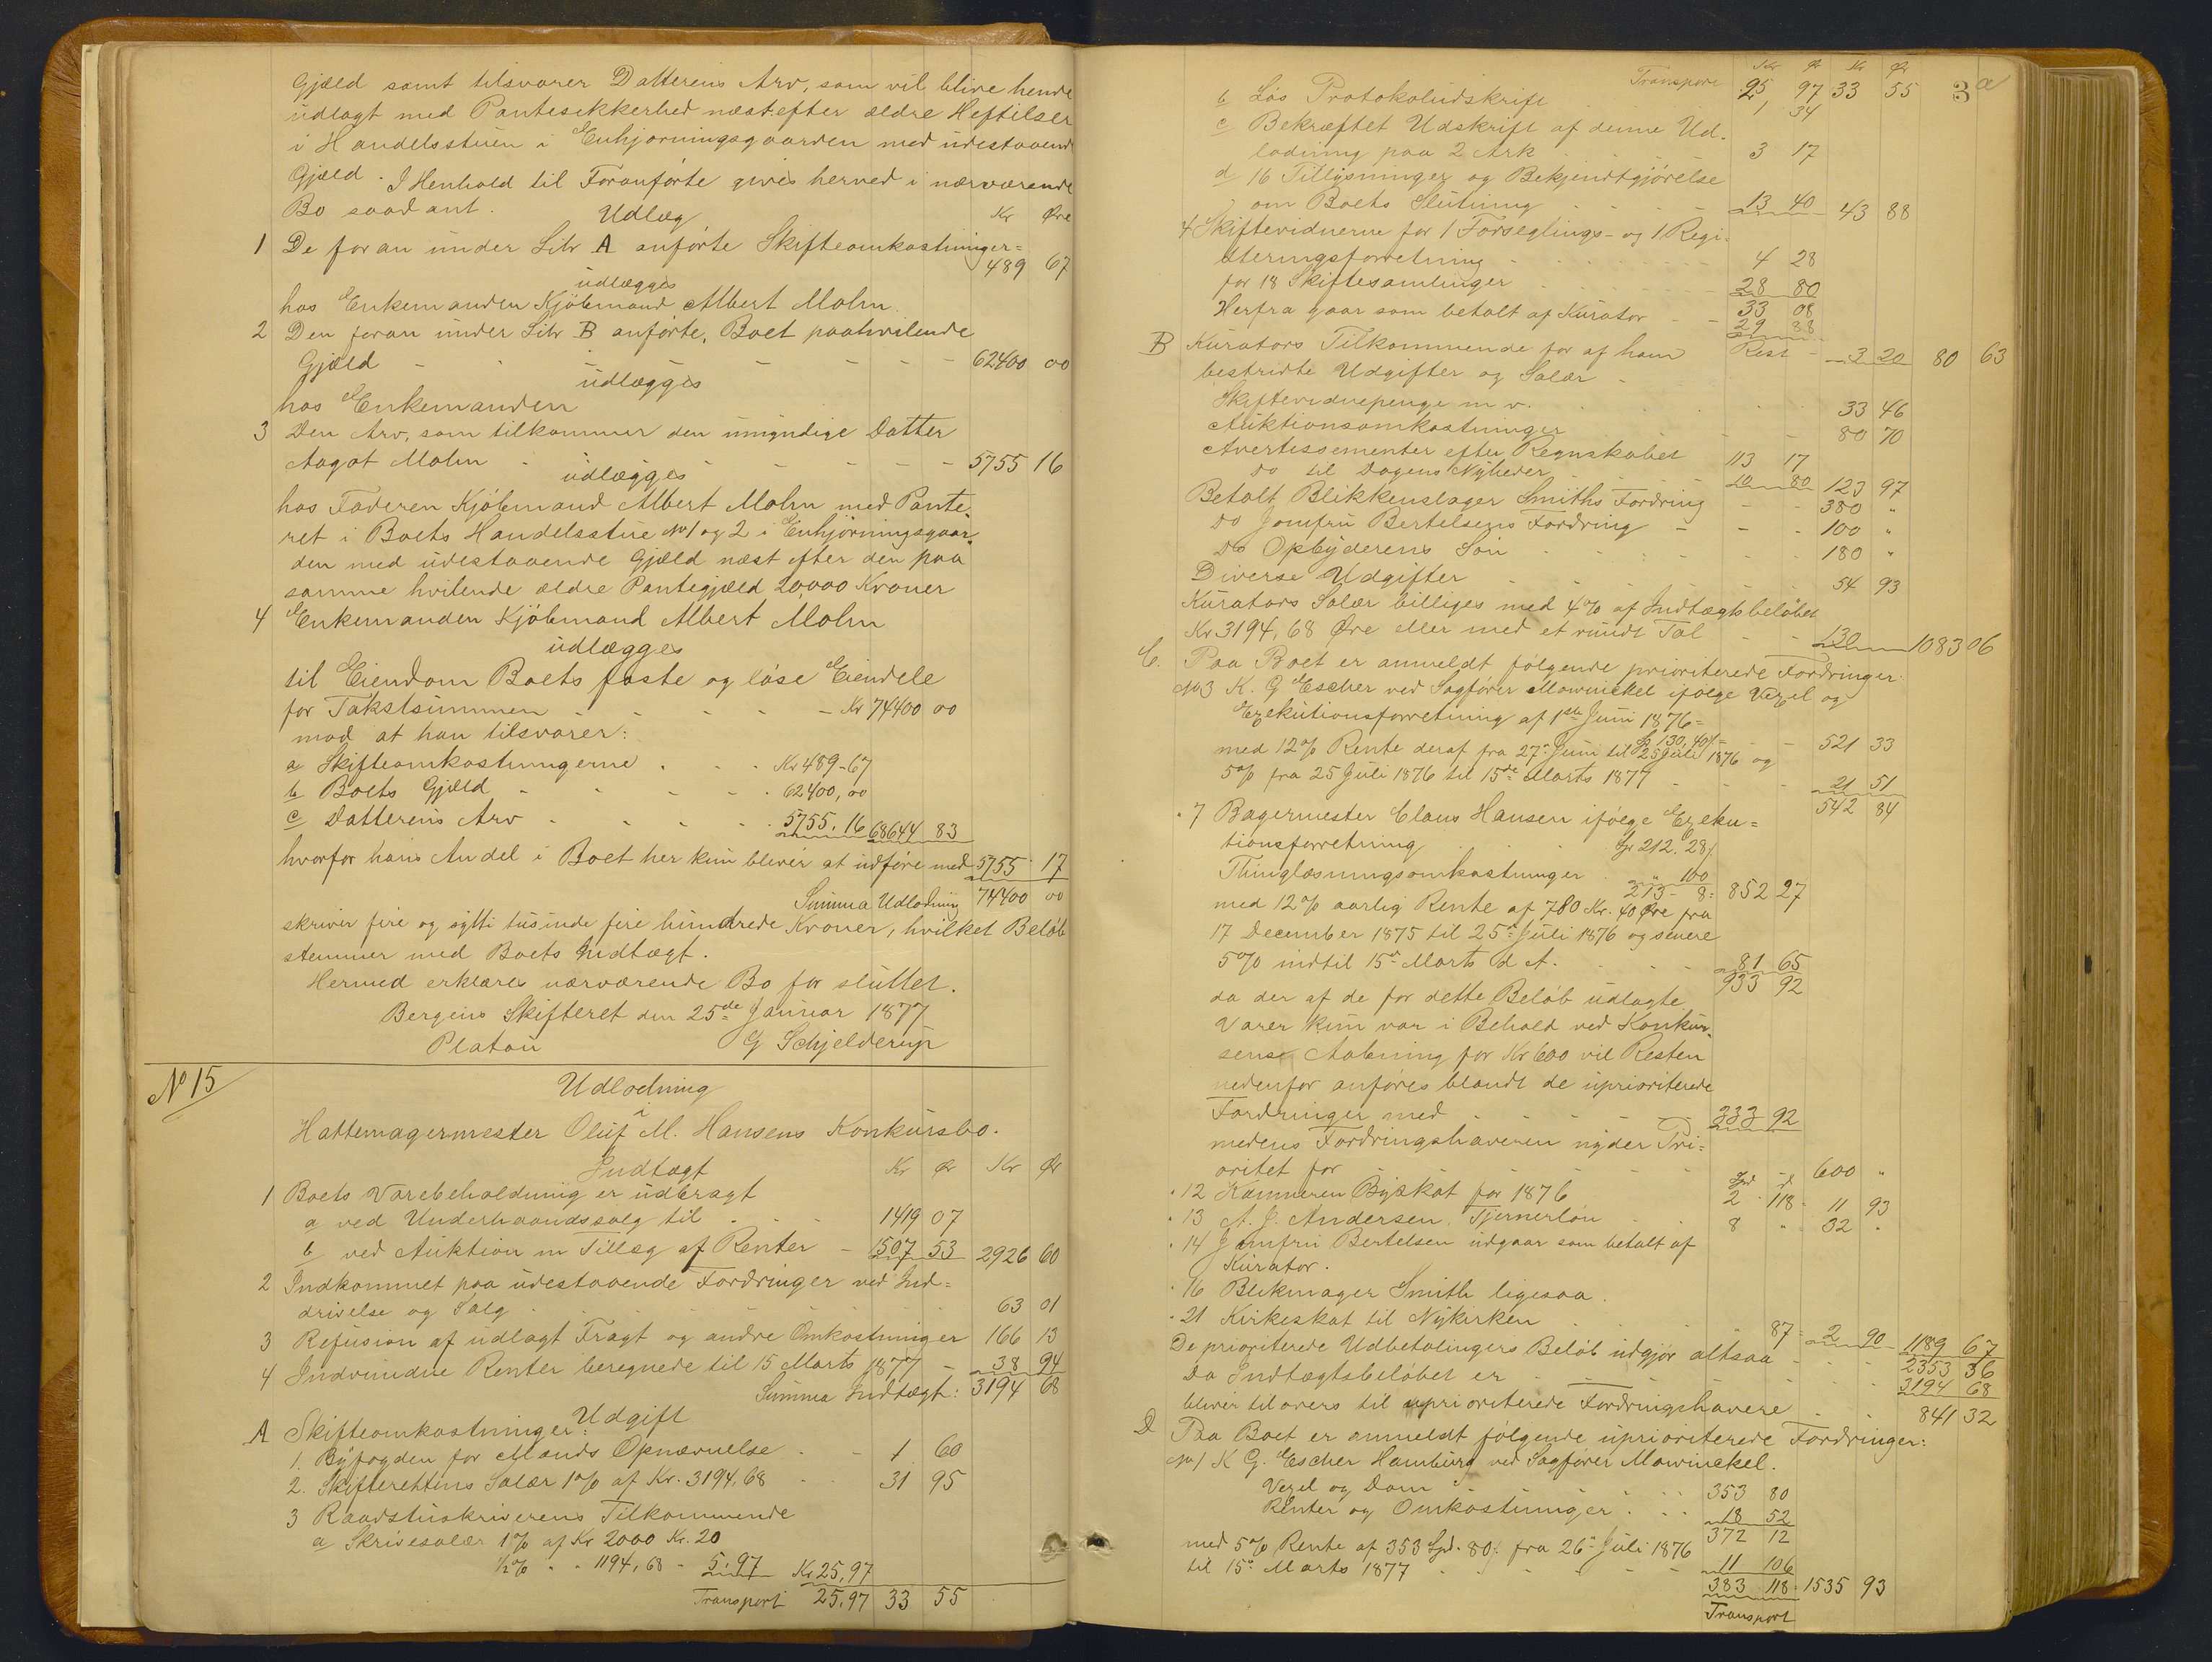 Gjæld samt tilsvarer Datterens Arv, som vil blive hende
udlagt med Pantesikkerhed næst efter ældre Heftelser
i Handelsstuen i Enhjørningsgaarden med udestaaende
Gjæld. I Henhold til Foranførte gives herved i nærværende
Bo saadant
Udlæg
Kr Øre
1 De foran under Litr A anførte Skifteomkostninger= 489 67
udlægges
hos Enkemanden Kjøbmand Albert Mohn.
2 Den foran under Litr B anførte, Boet paahvilende
Gjæld - - - - 62400 00
udlægges
hos Enkemanden
3 Den Arv, som tilkommer den umyndige Datter
Aagot Mohn - - - - 5755 16
udlægges
hos Faderen Kjøbmand Albert Mohn med Pante-
ret i Boets Handelsstue No 1 og 2 i Enhjørningsgaar-
den med udestaaende Gjæld næst efter den paa
samme hvilende ældre Pantegjæld 20,000 Kroner
4 Enkemanden Kjøbmand Albert Mohn
udlægges
til Eiendom Boets faste og løse Eiendele
for Takstsummen - - - - Kr 74400 00
mod at han tilsvarer:
a Skifteomkostningerne . . . Kr 489-67
b Boets Gjæld - - - - 62400,00
c Datterens Arv - - - 5755.16 68644 83
hvorfor hans Andel i Boet her kun bliver at udføre med 5755 17
Summa Udlodning 74400 00
skriver fire og sytti tusinde fire hundrede Kroner, hvilket Beløb
stemmer med Boets Indtægt.
Hermed erklæres nærværende Bo for sluttet.
Bergens Skifteret den 25de Januar 1877
Platou G Schjelderup
No 15
Udlodning
i
Hattemagermester Oluf M. Hansens Konkursbo.
Indtægt Kr Ør Kr Ør
1 Boets Varebeholdning er udbragt
a ved Underhaandssalg til . . . 1419 07
b ved Auktion m Tillæg af Renter - 1507 53 2926 60
2 Indkommet paa udestaaende Fordringer ved Ind=
drivelse og Salg . . . 63 01
3 Refusion af udlagt Fragt og andre Omkostninger 166 13
4 Indvundne Renter beregnede til 15 Marts 1877 - 38 94
Summa Indtægt: 3194 68
Udgift
A Skifteomkostninger:
1. Byfogden for Mands Opnævnelse . - 1 60
2. Skifterettens Salær 1% af Kr. 3194,68 - 31 95
3 Raadstuskriverens Tilkommende
a Skrivesalær 1% af Kr 2000 Kr. 20
½% " " 1194,68 - 5.97 Kr 25,97
Transport 25,97 33 55
3 a
Kr Ør Kr Ør
Transport 25 97 33 55
b Løs Protokoludskrift . . . 1 34
c Bekræftet Udskrift af denne Ud-
lodning paa 2 Ark . . . 3 17
d 16 Tillysninger og Bekjendtgjørelse
om Boets Slutning . . . 13 40 43 88
4 Skiftevidnerne for 1 Forseglings- og 1 Regi-
streringsforretning - - - 4 28
for 18 Skiftesamlinger . . . 28 80
33 08
Herfra gaar som betalt af Kurator - - 29 88
Rest - 3 20 80 63
B Kurators Tilkommende for af ham
bestridte Udgifter og Salær -
Skiftevidnepenge m v. . . . 33 46
Auktionsomkostninger - - 80 70
Avertissementer efter Regnskabet 113 17
do til Dagens Nyheder 10 80 123 97
Betalt Blikkenslager Smiths Fordring - - 380 "
do Jomfru Bertelsens Fordring - - - 100 "
do Opbyderens Løn . . . 180 "
Diverse Udgifter - - - 54 93
Kurators Salær billiges med 4% af Indtægtsbeløbet
Kr 3194,68 Øre eller med et rundt Tal - - 130 1083 06
C. Paa Boet er anmeldt følgende prioriterede Fordringer:
No 3 K. G Escher ved Sagfører Mowinckel ifølge Vexel og
Exekutionsforretning af 1ste Juni 1876=
Sp 130,40 ß= - - 521 33
med 12% Rente deraf fra 27de Juni til 25 Juli 1876 og
5% fra 25 Juli 1876 til 15de Marts 1877 - - 21 51
542 84
" 7 Bagermester Claus Hansen ifølge Exeku=
tionsforretning . . . Sp 212. 28ß
Thinglæsningsomkostninger . " 100
213- 8= 852 27
med 12% aarlig Rente af 780 Kr. 40 Øre fra
17 December 1875 til 25de Juli 1876 og senere
5% indtil 15de Marts d A. . . 81 65
933 92
da der af de for dette Beløb udlagte
Varer kun var i Behold ved Konkur-
sens Aabning for Kr 600 vil Resten
nedenfor anføres blandt de uprioriterede
Fordringer med . . . 333 92
medens Fordringshaveren nyder Pri=
oritet for - - 600 "
Spd ß
" 12 Kæmneren Byskat for 1876 2 " 118 - 11 93
" 13 A. J. Andersen, Tjenerløn 8 " 32 "
" 14 Jomfru Bertelsen udgaar som betalt af
Kurator.
" 16 Blikmager Smith ligesaa.
" 21 Kirkeskat til Nykirken . . . 87= 2 90 1189 67
De prioriterede Udbetalingers Beløb udgjør altsaa - - 2353 36
Da Indtægtsbeløbet er . . . 3194 68
bliver tilovers til uprioriterede Fordringshavere . . 841 32
D Paa Boet er anmeldt følgende uprioriterede Fordringer:
No 1 K G. Escher Hamburg ved Sagfører Mowinckel.
Vexel og Dom . . . 353 80
Renter og Omkostninger . . . 18 52
372 12
med 5% Rente af 353 Spd. 80ß. fra 26de Juli 1876
til 15de Marts 1877 . . . 11 106
383 118 - 1535 93
Transport